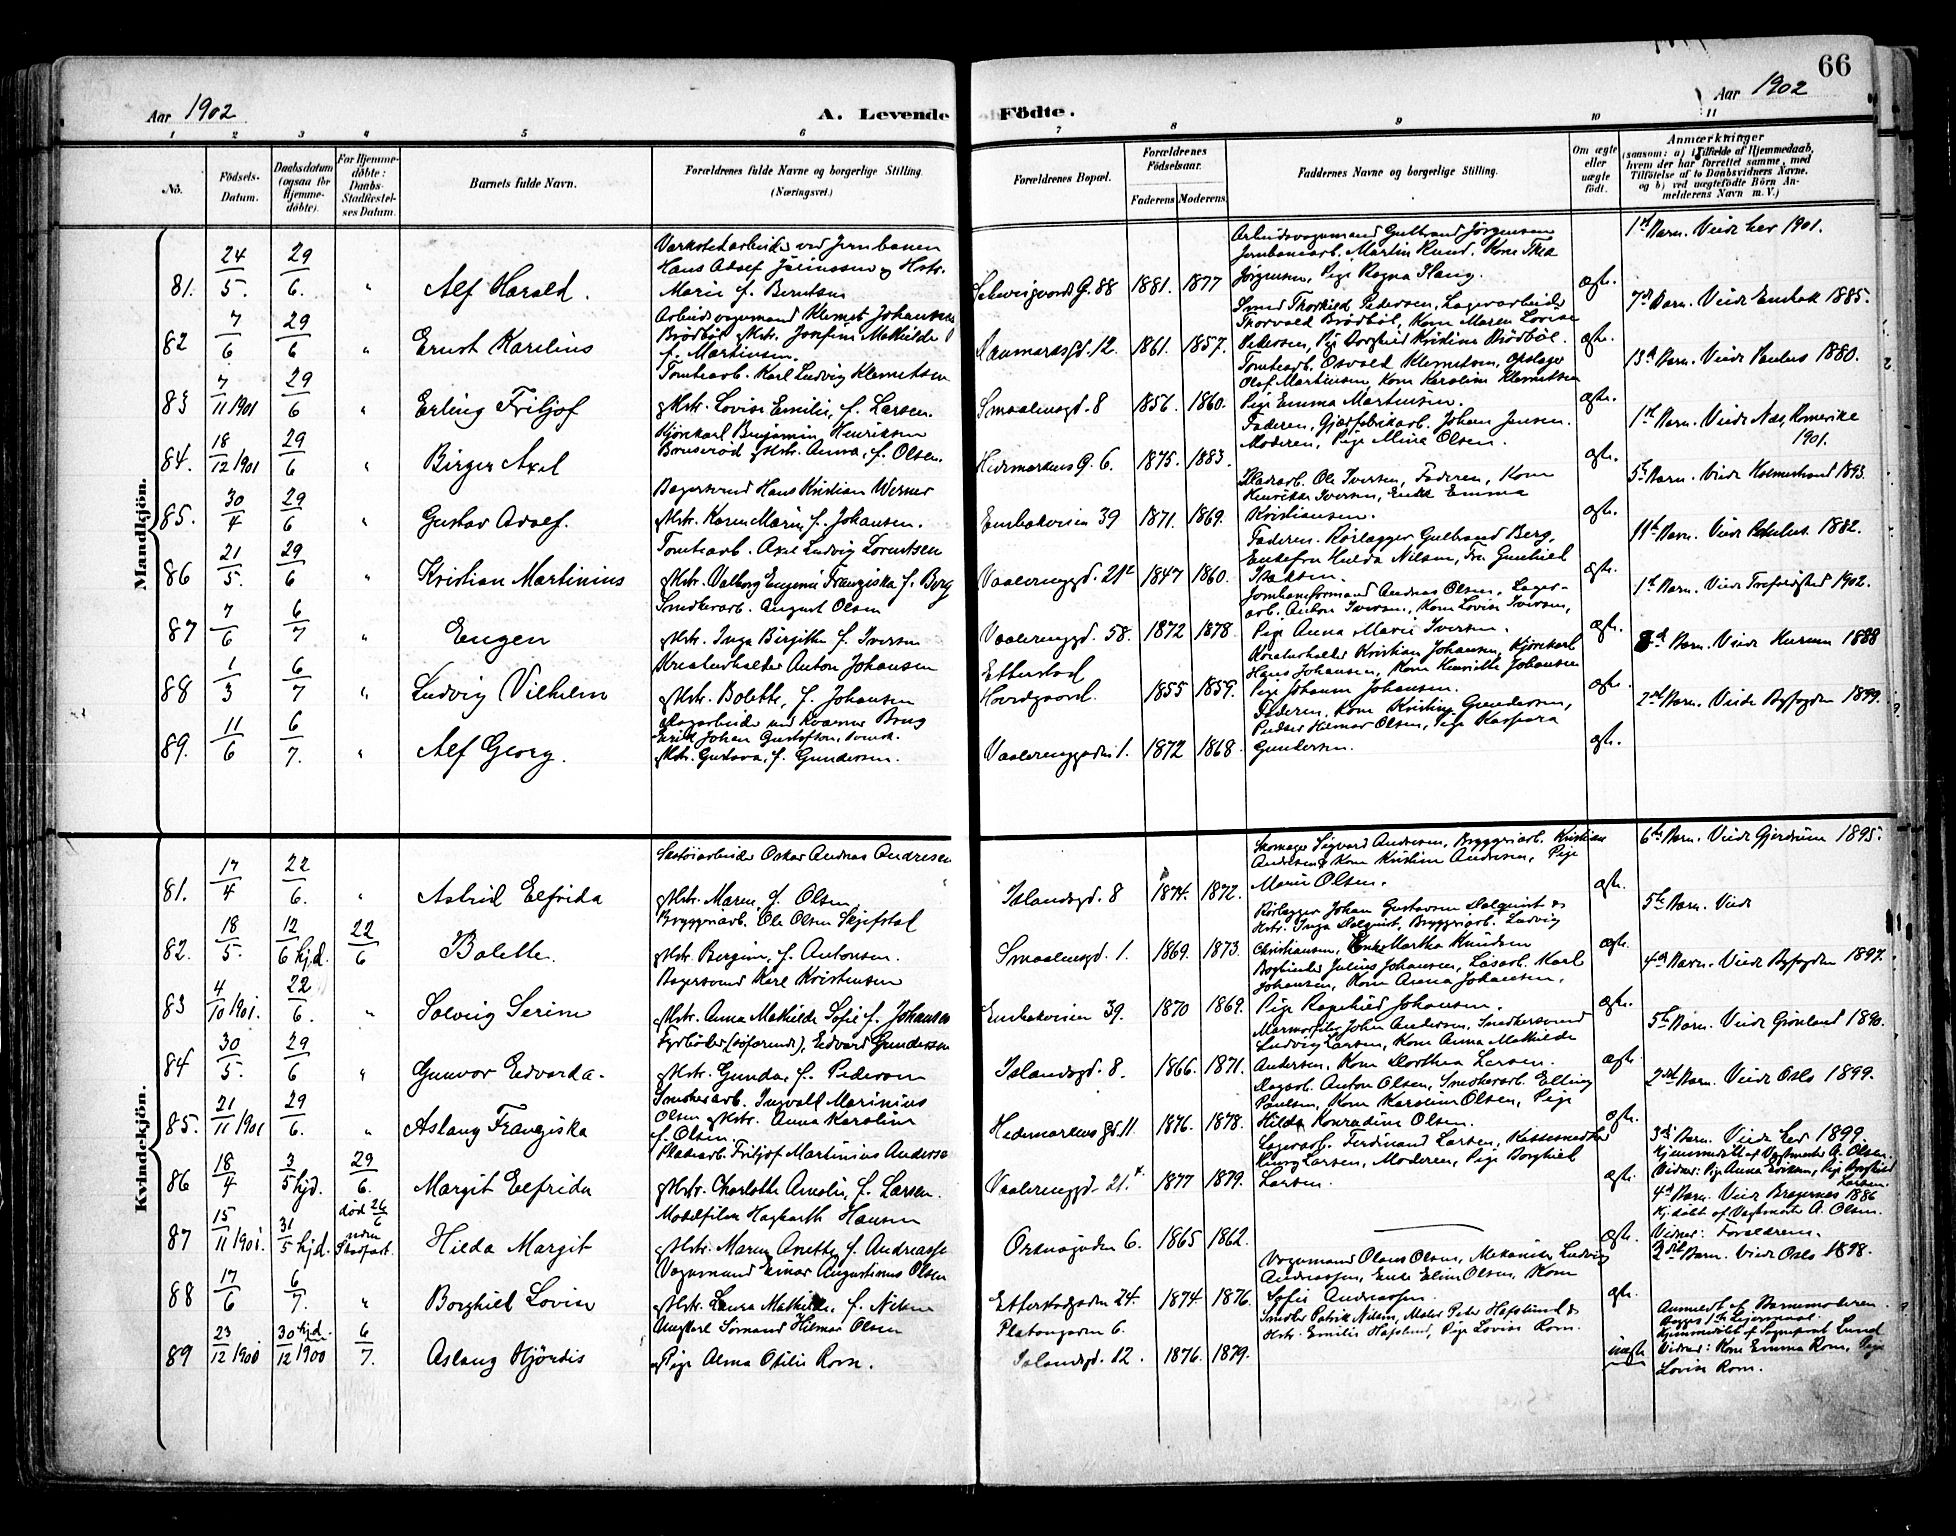 66
Aar 1902
A. Levende
Födte.
Aar 1902
1 2 3 4 5 6 7 8 9 10 11
No.
Födsels-Datum.
Daabsdatum (ogsaa for Hjemmedöbte).
For Hjemmedöbte: Daabs-Stadfæstelses Datum.
Barnets fulde Navn.
Forældrenes fulde Navne og borgerlige Stilling. (Næringsvei.)
Forældrenes Bopæl.
Forældrenes Födselsaar.
Faderens Moderens
Faddernes Navne og borgerlige Stilling.
Om ægte eller uægte födt.
Anmærkninger
(saasom: a) i Tilfælde af Hjemmedaab, hvem der har forrettet samme, med Tilföielse af to Daabsvidners Navne, og b) ved uægtefödte Börn Anmelderens Navn m. V.)
Mandkjön.
81. 24/5. 29/6. " Alf Harald.
Værkstedarbeider ved Jernbanen
Marie f. Berntsen
Schweigaards G. 88 1881. 1877
Arbeidsvognmand Gulbrand Jörgensen
Jernbanearb. Martin Rund. Kone Thea
Jörgensen, Pige Ragna Haug.
ægte.
1ste Barn. Viede her 1901.
82 7/6 29/6 " Ernst Karelius
Arbeidsvognmand Klemet Johansen
Brödböl & Hstr. Josefine Mathilde
f. Martinsen.
12. 1861. 1857.
Smed Thorkild Pedersen, Lagerarbeider
Thorvald Brödböl, Kone Maren Lovise
Pedersen, Pige Borghild Kristine Brödböl.
ægte.
7de Barn. Viede Enebak 1885.
83 7/11 1901 29/6 " Erling Fritjof
Tomtearb. Karl Ludvig Klemetsen
& Hstr. Lovise Emilie, f. Larsen.
Smaalensgd. 8 1856. 1860.
Tomtearb. Osvald Klemetsen, Opslager
Olaf Martinsen, Kone Karoline Klemetsen
Pige Emma Martinsen.
ægte.
13de Barn. Viede Paulus 1880.
84. 18/12 1901 29/6 " Birger Axel
Kjörekarl Benjamin Henriksen
& Hstr. Anna, f. Olsen.
Hedemarkens G. 6. 1875. 1883.
Faderen, Gjærfabrikarb. Johan Jensen.
Moderen, Pige Mina Olsen.
ægte.
1ste Barn. Viede Næs, Romerike
1901.
85. 30/4 29/6 " Gustav Adolf.
Bagersvend Hans Kristian Werner
& Hstr. Karen Marie, f. Johansen.
Enebakveien 39 1871. 1869.
Ole Iversen, Faderen, Kone
Henrikke Iversen, Enke Emma
Kristiansen.
ægte.
5te Barn. Viede Holmestrand 1893.
86 21/5. 29/6 " Kristian Martinius
Tomtearb. Axel Ludvig Lorentsen
& Hstr. Valborg Eugenie Franziska f. Berg
Vaalerenggd. 21 1847 1860.
Faderen. Rörlægger Gulbrand Berg,
Enkefru Hulda Nilsen, Fru Gunhild
Isaksen.
ægte.
11te Barn. Viede Paulus. 1882.
87 7/6 6/7 " Eugen
Snedkerarb. August Olsen
& Hstr. Inga Birgitte f. Iversen
Vaalerenggd. 58. 1872 1878.
Jernbaneformand Andreas Olsen, Lager-
arb. Anton Iversen, Kone Lovise Iversen,
Pige Anna Marie Iversen.
ægte.
1ste Barn. Viede Trefoldighed 1902.
88 1/3 6/7 " Ludvig Vilhelm
Kreaturholder Anton Johansen
& Hstr. Bolette, f. Johansen
Etterstad
Hovedgaard. 1855 1859.
Kreaturholder Kristian Johansen, Kjörekarl
Hans Johansen, Kone Henriette Johansen
Pige Johanne Johansen.
ægte.
Barn. Viede Hurum 1888
89. 11/6 6/7. " Alf Georg.
Dagarbeider ved Kværner Brug
Erik Johan Gustafson, svensk.
& Hstr. Gustava, f. Gundersen.
Vaalerenggaden 1. 1872 1868.
Faderen, Kone Kristine Gundersen,
Pudser Hilmar Olsen, Pige Kaspara
Gundersen.
ægte.
2det Barn. Viede Byfogden 1899.
Kvindekjön.
81. 17/4 22/6. " Astrid Elfrida
Skotöiarbeider Oskar Andreas Andresen
& Hstr. Maren, f. Olsen
Islandsgd. 8 1874. 1872.
Skomager Sigvard Andersen, Bryggeriarb. Kristian
Andersen & Kone Kristine Andersen, Pige
Marie Olsen.
ægte.
6te Barn. Viede Gjerdrum 1895.
82. 18/5. 12/6 hjd. 22/6 Bolette.
Bryggeriarb. Ole Olsen Skjefstad
& Hstr. Bergine, f. Antonsen.
Smaalensgd. 1. 1869. 1873.
Rörlægger Johan Gustavsen Dalquist &
Hstr. Inga Dalquist, Bryggeriarb. Ludvig
Christiansen, Enke Martha Knudsen
ægte.
5te Barn. Viede
83 4/10 1901. 22/6. " Solveig Serine
Bagersvend Karl Kristensen
& Hstr. Anna Mathilde Sofie f. Johansen
Enebakveien 39. 1870 1869.
Bogbinder Julius Johansen, Karl
Johansen, Kone Anna Johansen,
Pige Ragnhild Johansen.
ægte.
4de Barn. Viede Byfogden 1897.
84 30/5. 29/6 " Gunvor Edvarda.
Fyrböder (söfarende), Edvard Gundersen
& Hstr. Gunda, f. Pedersen
Islandsgd. 8. 1866. 1871.
John Andersen, Snedkersvend
Ludvig Larsen, Kone Anna Mathilde
Andersen, Kone Dorthea Larsen.
ægte.
5te Barn. Viede Grönland 1890.
85. 21/11 1901 29/6. " Aslaug Franziska
Snedkerarb. Ingvald Marinius
Olsen & Hstr. Anna Karoline
f. Olsen.
Hedemarkens gd. 11. 1876. 1878.
Dagarb. Anton Olsen, Snedkerarb. Elling
Paulsen, Kone Karoline Olsen, Pige
Hilda Konradine Olsen.
ægte.
2det Barn. Viede Oslo 1899.
86 18/4 3/5 hjd. 29/6. Margit Elfrida
Pladearb. Fritjof Martinius Andersen
& Hstr. Charlotte Amalie, f. Larsen.
Vaalerenggd. 21 1877 1879.
Lagerarb. Ferdinand Larsen,
Larsen, Moderen, Pige Borghild
Larsen.
ægte.
3die Barn. Viede her 1899.
Hjemmedöbt af Vagtmester A. Olsen.
Vidner: Pige Anna Eriksen, Pige Borghild
Larsen.
87 15/11 1901. 31/5 hjd. död 26/6 uden Stadfæst. Hilda Margit
Modelfiler Hagbarth Hansen
& Hstr. Maren Anette, f. Andreassen
6. 1865 1862.
ægte.
4de Barn. Viede Bragernes 1886
Hj. döbt af Vagtmester A. Olsen.
Vidner: Forældrene.
88 17/6 6/7. " Borghild Lovise
Vognmand Einar Augustinus Olsen
& Hstr. Laura Mathilde, f. Nilsen
Etterstadgaden 24. 1874. 1876.
Vognmand Olaus Olsen, Mekaniker Ludvig
Andreassen, Enke Eline Olsen, Kone
Sofie Andreassen.
ægte.
Barn. Viede Oslo 1898.
89 23/12 1900 30/12 hjd. 1900 6/7. Aslaug Hjördis
Ungkarl Sömand Hilmar Olsen
& Pige Alma Otilie Rom.
Platougaden 6.
Islandsgd. 12. 1876. 1879.
Smed Patrik Nilsen, Maler Peter Hafslund &
Hstr. Emilie Hafslund, Pige Lovise Rom.
uægte
Anmeldt af Barnemoderen.
Hjemmedöbt af Sognepræst Lund
Vidner: Kone Emma Rom, Pige
Lovise Rom.